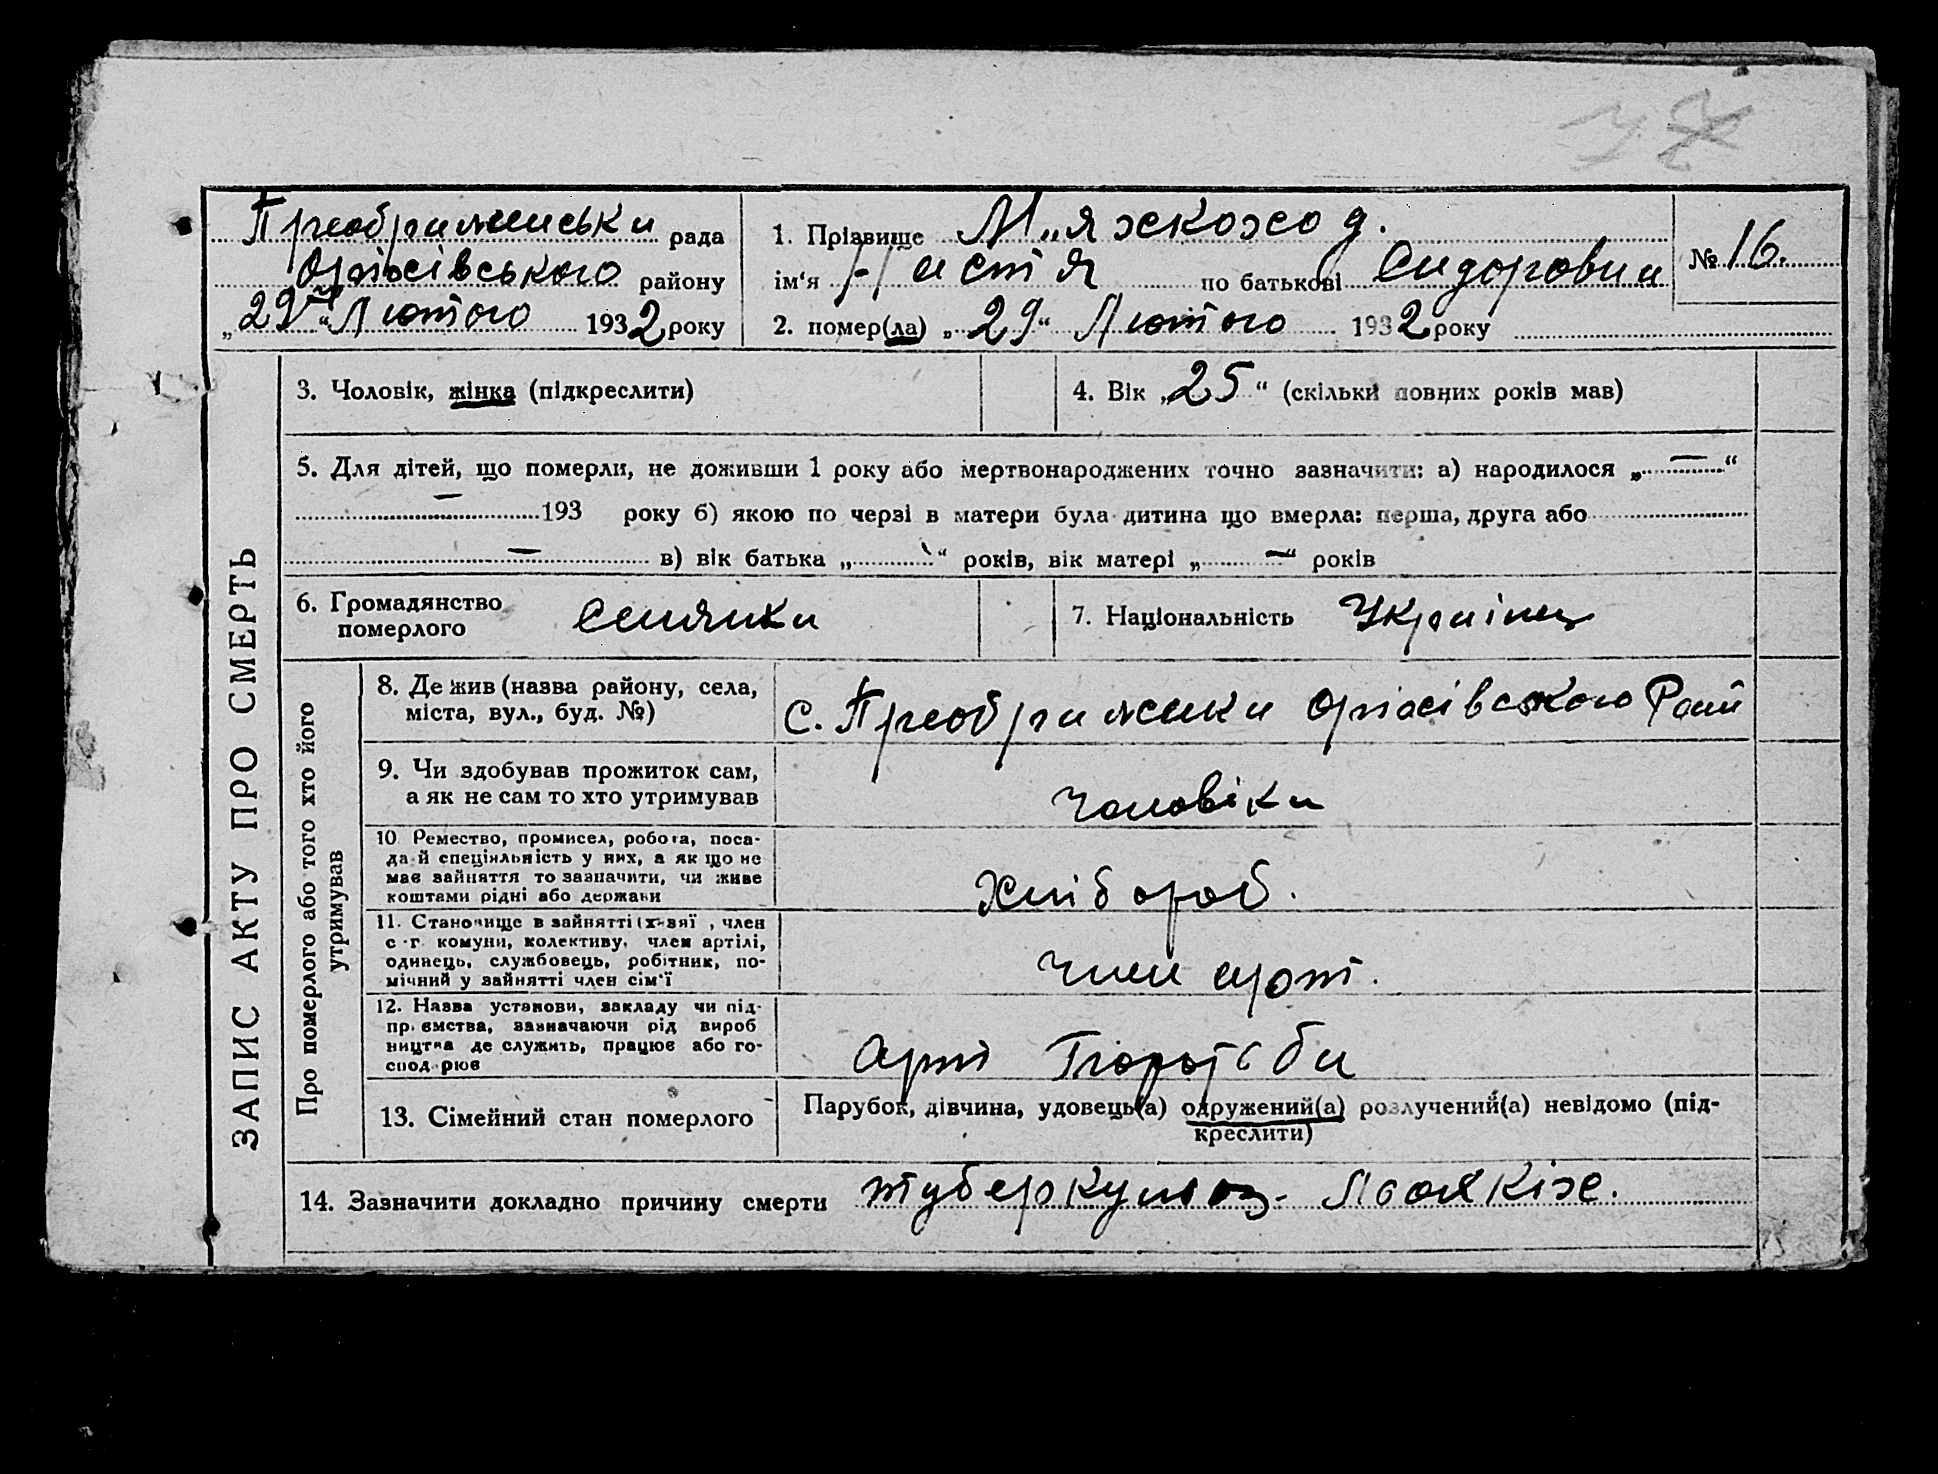 Преображенська рада
Оріхівського району
„29“ Лютого 1932 року
1. Прізвище М„яхкоход.
ім'я Настя по батькові Сидоровна
№ 16.
2. помер(ла) „29“ Лютого 1932 року
ЗАПИС АКТУ ПРО СМЕРТЬ
3. Чоловік, жінка (підкреслити)
4. Вік „25“ (скільки повних років мав)
5. Для дітей, що померли, не доживши 1 року або мертвонароджених точно зазначити: а) народилося „—“
— 193 року б) якою по черзі в матери була дитина що вмерла: перша, друга або
— в) вік батька „-“ років, вік матері „—“ років
6. Громадянство
померлого
Селянка
7. Національність Українц
Про померлого або того хто його
утримував
8. Де жив (назва району, села,
міста, вул., буд. №)
с. Преображенка Оріхівського Рай
9. Чи здобував прожиток сам,
а як не сам то хто утримував
Чоловіка
10 Ремество, промисел, робота, поса-
да й спеціяльність у них, а як що не
має зайняття то зазначити, чи живе
коштами рідні або держави
Хлібороб.
11. Становище в зайнятті (х-зяї , член
с-г. комуни, колективу, член артілі,
одинець, службовець, робітник, по-
мічний у зайнятті член сім'ї
член арт.
12. Назва установи, закладу чи під-
пр.ємства, зазначаючи рід вироб
ництва де служить, працює або го-
спод.рює
Арт
13. Сімейний стан померлого
Парубок, дівчина, удовець(а) одружений(а) розлучений(а) невідомо (під-
креслити)
14. Зазначити докладно причину смерти туберкульоз.